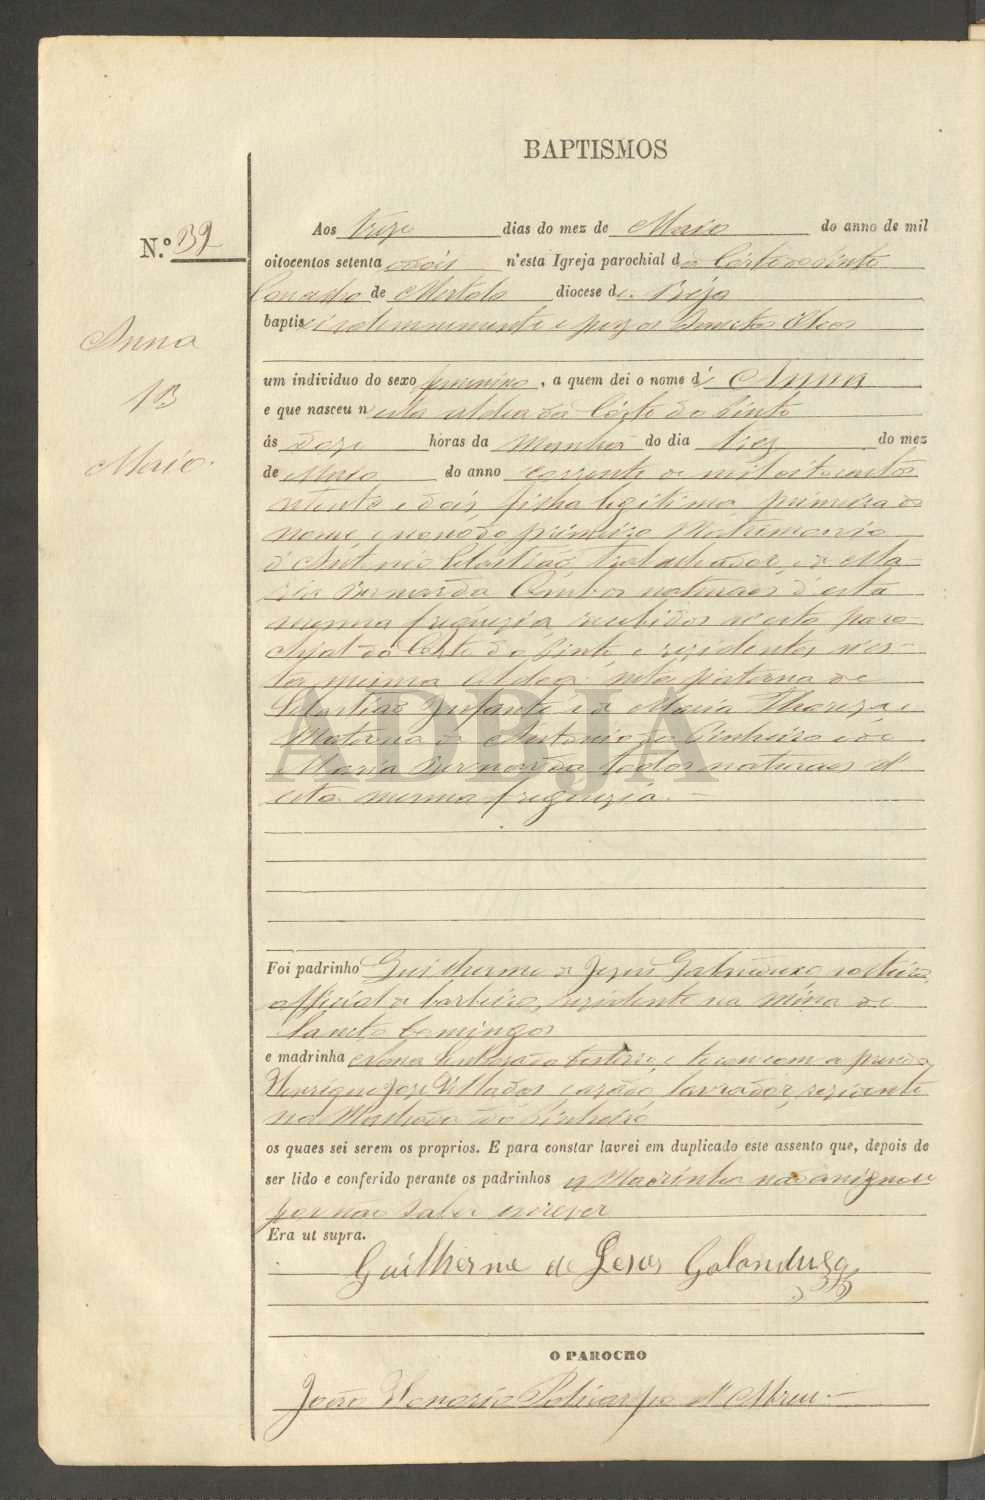 BAPTISMOS
N.º 39
Anna
13
Maio.
Aos treze dias do mez de Maio do anno de mil
oitocentos setenta e dois n'esta Igreja parochial da Córte do Pinto
Concelho de Mertola diocese de Beja
baptisei solemnemente e puz os Sanctos Oleos
um individuo do sexo feminino, a quem dei o nome d' Anna
e que nasceu n'esta aldea da Córte do Pinto
ás doze horas da Manhã do dia trez do mez
de Maio do anno corrente de mil oitocentos
setenta e dois, filha legitima primeira do
nome, e do primeiro Matrimonio
d'Antonio Sebastião trabalhador, e de Ma-
ria Bernarda Ambos naturaes d'esta
mesma freguezia, recebidos n'esta paro-
chial da Corte do Pinto e rezidentes n'es-
ta mesma Aldea: neta paterna de
Sebastião Infante e de Maria Thereza e
Materna de Antonio Pinheiro e de
Maria Bernarda todos naturaes d'
esta mesma freguezia.
Foi padrinho Guilherme de Jezus Galanduxo solteiro
official de barbeiro, rezidente na Mina de
Sancto Domingos
e madrinha Nossa Senhora e tocou com a prenda
Henrique José Villadas cazado, lavrador, rezidente
no do Pinheiro
os quaes sei serem os proprios. E para constar lavrei em duplicado este assento que, depois de
ser lido e conferido perante os padrinhos a Madrinha não assignou
por não saber escrever
Era ut supra.
Guilherme de Jesus
O PAROCHO
João Honorio Policarpo d'Abreu.
ADBJA